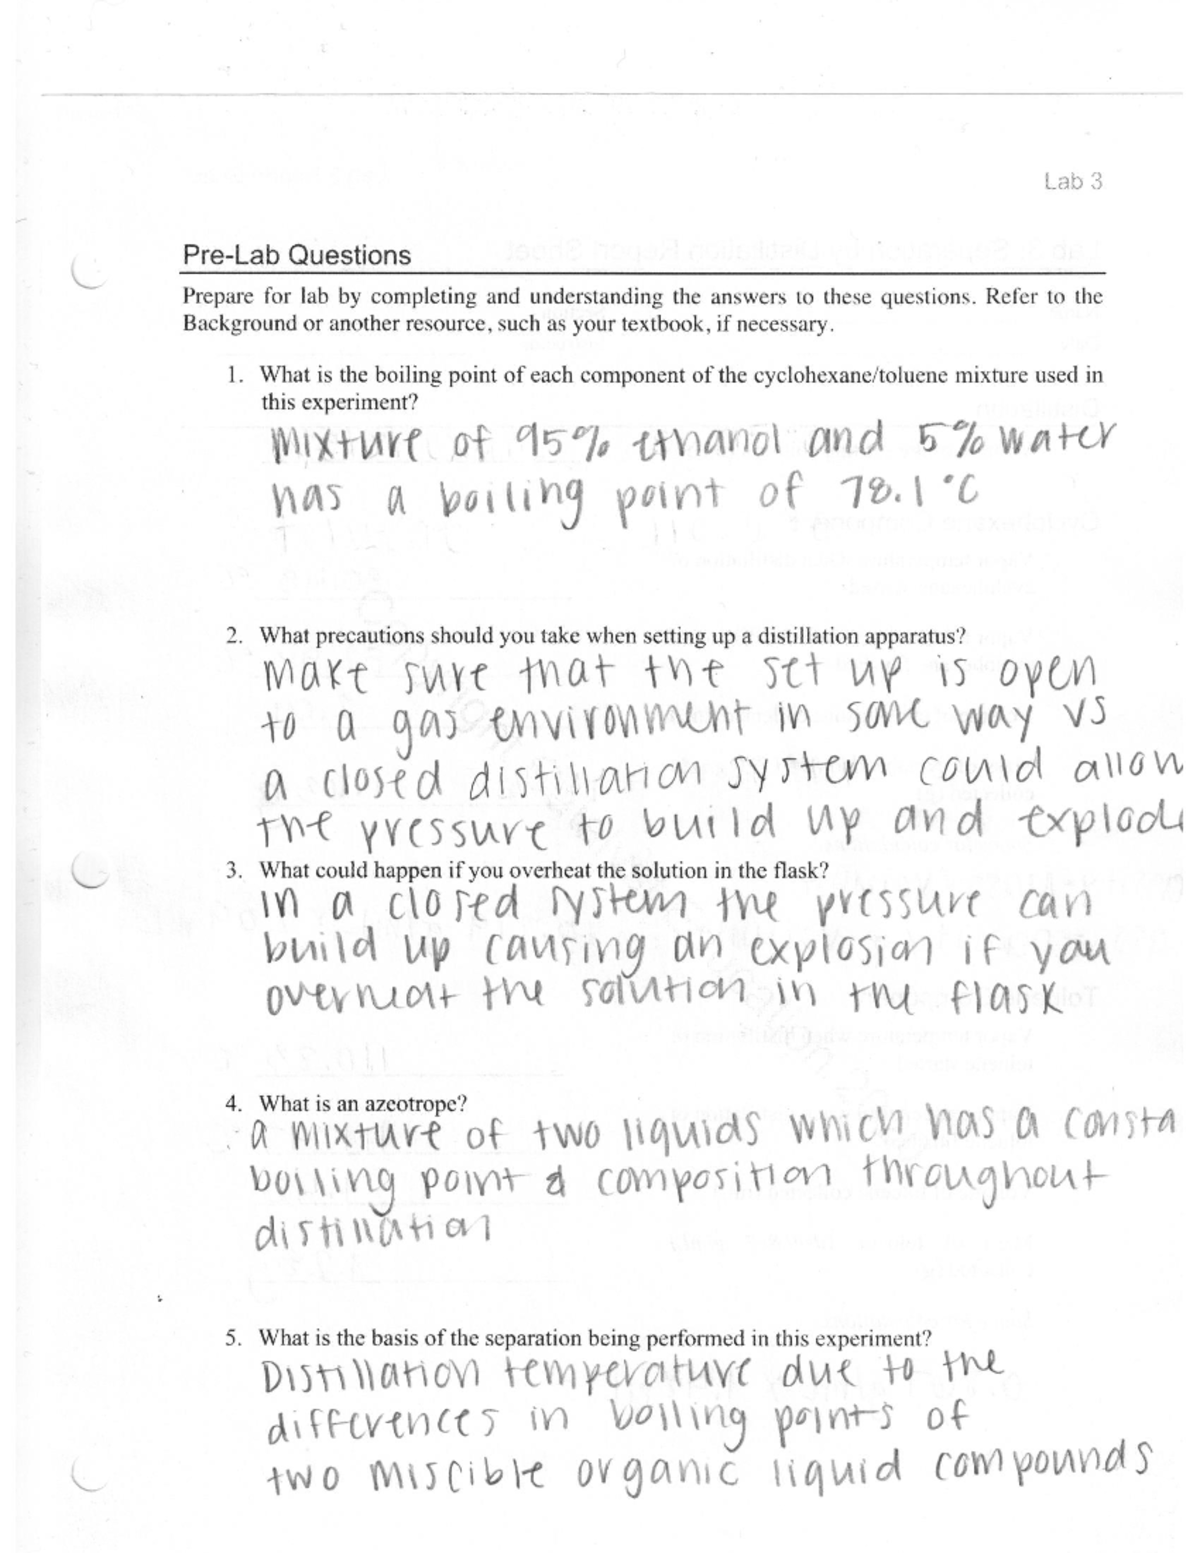 Lab 3
Pre-Lab Questions
Prepare for lab by completing and understanding the answers to these questions. Refer to the
Background or another resource, such as your textbook, if necessary.
1. What is the boiling point of each component of the cyclohexane/toluene mixture used in
this experiment?
Mixture of 95% ethanol and 5% water
has a boiling point of 78.1 °C
2. What precautions should you take when setting up a distillation apparatus?
Make sure that the set up is open
to a gas environment in some way vs
a closed distillation system could allow
the pressure to build up and explode
3. What could happen if you overheat the solution in the flask?
in a closed system the pressure can
build up causing an explosion if you
overheat the solution in the flask
4. What is an azeotrope?
a mixture of two liquids which has a consta
boiling point & composition throughout
distillation
5. What is the basis of the separation being performed in this experiment?
Distillation temperature due to the
differences in boiling points of
two miscible organic liquid compounds